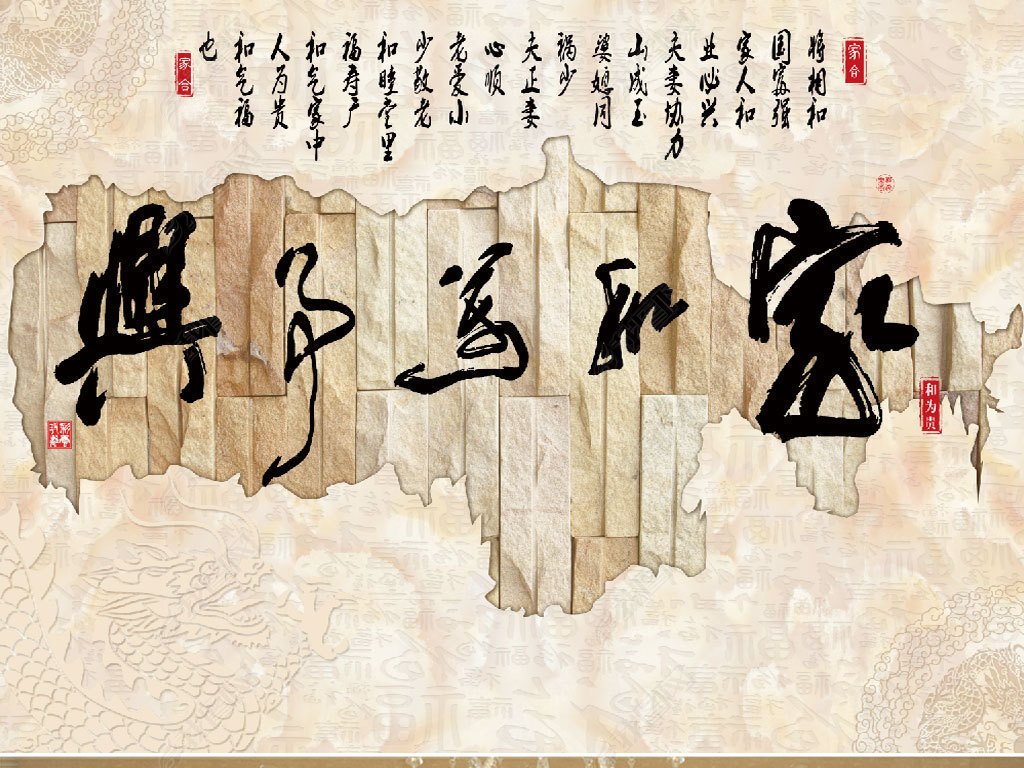 家合
将相和
国富强
家人和
业必兴
夫妻协力
山成玉
婆媳同
祸少
夫正妻
心顺
老爱小
少敬老
和睦堂里
福寿产
和气家中
人为贵
和气福
也
家合
家和萬事興
和为贵